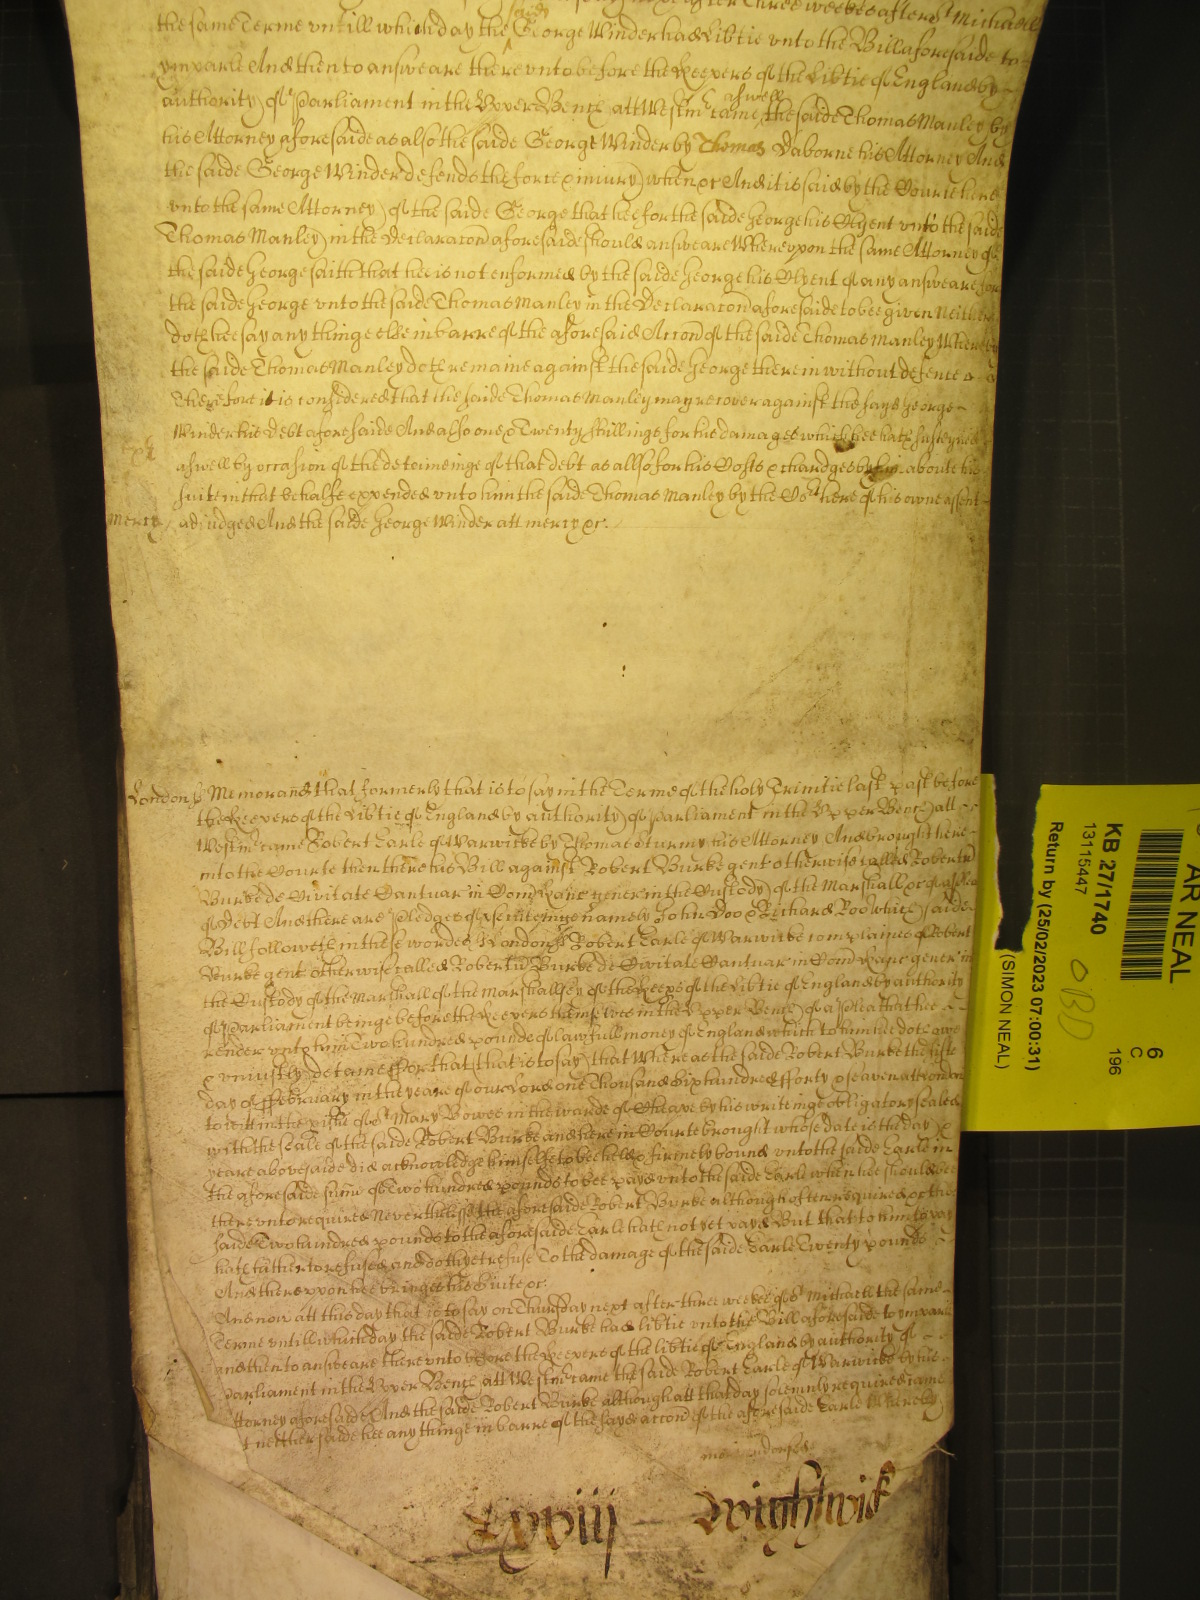 after three weekes after St Michaell
the same Terme untill which day the said George Winder had Libtie unto the Bill aforesaide to
ymparle And then to answeare there unto before the Keepers of the Libtie of England by
authority of Parliament in the Upper Bench att Westmr came aswell the saide Thomas Manley by
his Attorney aforesaide as also the saide George Winder by Thomas Daborne his Attorney And
the saide George Winder defends the force & iniury when &c And it is said by the Courte here
unto the same Attorney of the saide George that hee for the saide George his Clyent unto the saide
Thomas Manley in the Declaracon aforesaide should answeare Whereupon the same Attorney of
the saide George saith that hee is not enformed by the saide George his Clyent of any answeare for
the saide George unto the saide Thomas Manley in the Declaracon aforesaide to bee given Neither
doth hee say any thinge else in barre of the aforesaid Accon of the saide Thomas Manley Whereby
the saide Thomas Manley doth remaine against the saide George therein without defence
Therefore it is considered that the saide Thomas Manley may recover against the sayd George
Winder his Debt aforesaide And also one & Twenty shillings for his damages which hee hath susteyned
aswell by occasion of the deteineinge of that debt as allso for his Costs & chardges by him aboute his
suite in that behalfe expended unto him the saide Thomas Manley by the Cort here of his owne assent
Mercy adjudged And the saide George Winder att mercy &c.
London ss Memorand that formerly that is to say in the Terme of the holy Trinitie last past before
the Keepers of the Libtie of England by authority of Parliament in the Upper Bench att
Westmr came Robert Earle of Warwicke by Thomas Sturmy his Attorney And brought here
into the Courte then there his Bill against Robert Burke gent otherwise called Robertu
Burke de Civitate Cantuar in Com Kanc gener in the Custody of the Marshall &c of a plea
of Debt And there are Pledges of prosecuteinge namely John Doo & Richard Roo which saide
Bill followeth in these wordes London ss Robert Earle of Warwicke complaines of Robert
Burke gent otherwise called Robertu Burke de Civitate Cantuar in Com Kanc gener in
the Custody of the Marshall of the Marshallsey of the Keeps of the Libtie of England by authority
of Parliament beinge before the Keepers themselves in the Upper Bench of a Plea that hee
render unto him Two hundred pounds of lawfull money of England which to him hee doth owe
& uniustly detaine For that that is to say that Whereas the saide Robert Burke the fifte
day of February in the yeare of our Lord one Thousand Six hundred fforty & seaven att London
to witt in the pishe of St Mary Bowe in the warde of Cheape by his writeinge obligatory sealed
with the seale of the saide Robert Burke and here in Courte brought whose date is the day &
yeare abovesaide did acknowledge himselfe to bee held & firmely bound unto the saide Earle in
the aforesaide sume of Two hundred pounds to bee payd unto the saide Earle when hee should bee
there unto required Neverthelesse the aforesaide Robert Burke although often required &c the
saide Two hundred pounds to the aforesaide Earle hath not yet payd But that to him to pay
hath hitherto refused and doth yet refuse To the damage of the saide Earle Twenty pounds
And thereupon hee bringes his Suite &c.
And now att this day that is to say on Thursday next after three weekes of St Michaell the same
Terme untill which day the saide Robert Burke had libtie unto the Bill aforesaide to ymparle
and then to answeare there unto before the Keepers of the libtie of England by authority of
Parliament in the Upper Bench att Westmr came the saide Robert Earle of Warwicke by his
Attorney aforesaide And the saide Robert Burke although att that day solemnly required came
not neither saide hee any thinge in barre of the sayd accon of the aforesaide Earle Whereby
Lxviij Wightwick
AR NEAL
KB 27/1740
13115447
Return by (25/02/2023 07:00:31)
(SIMON NEAL)
OBD
6
C
196